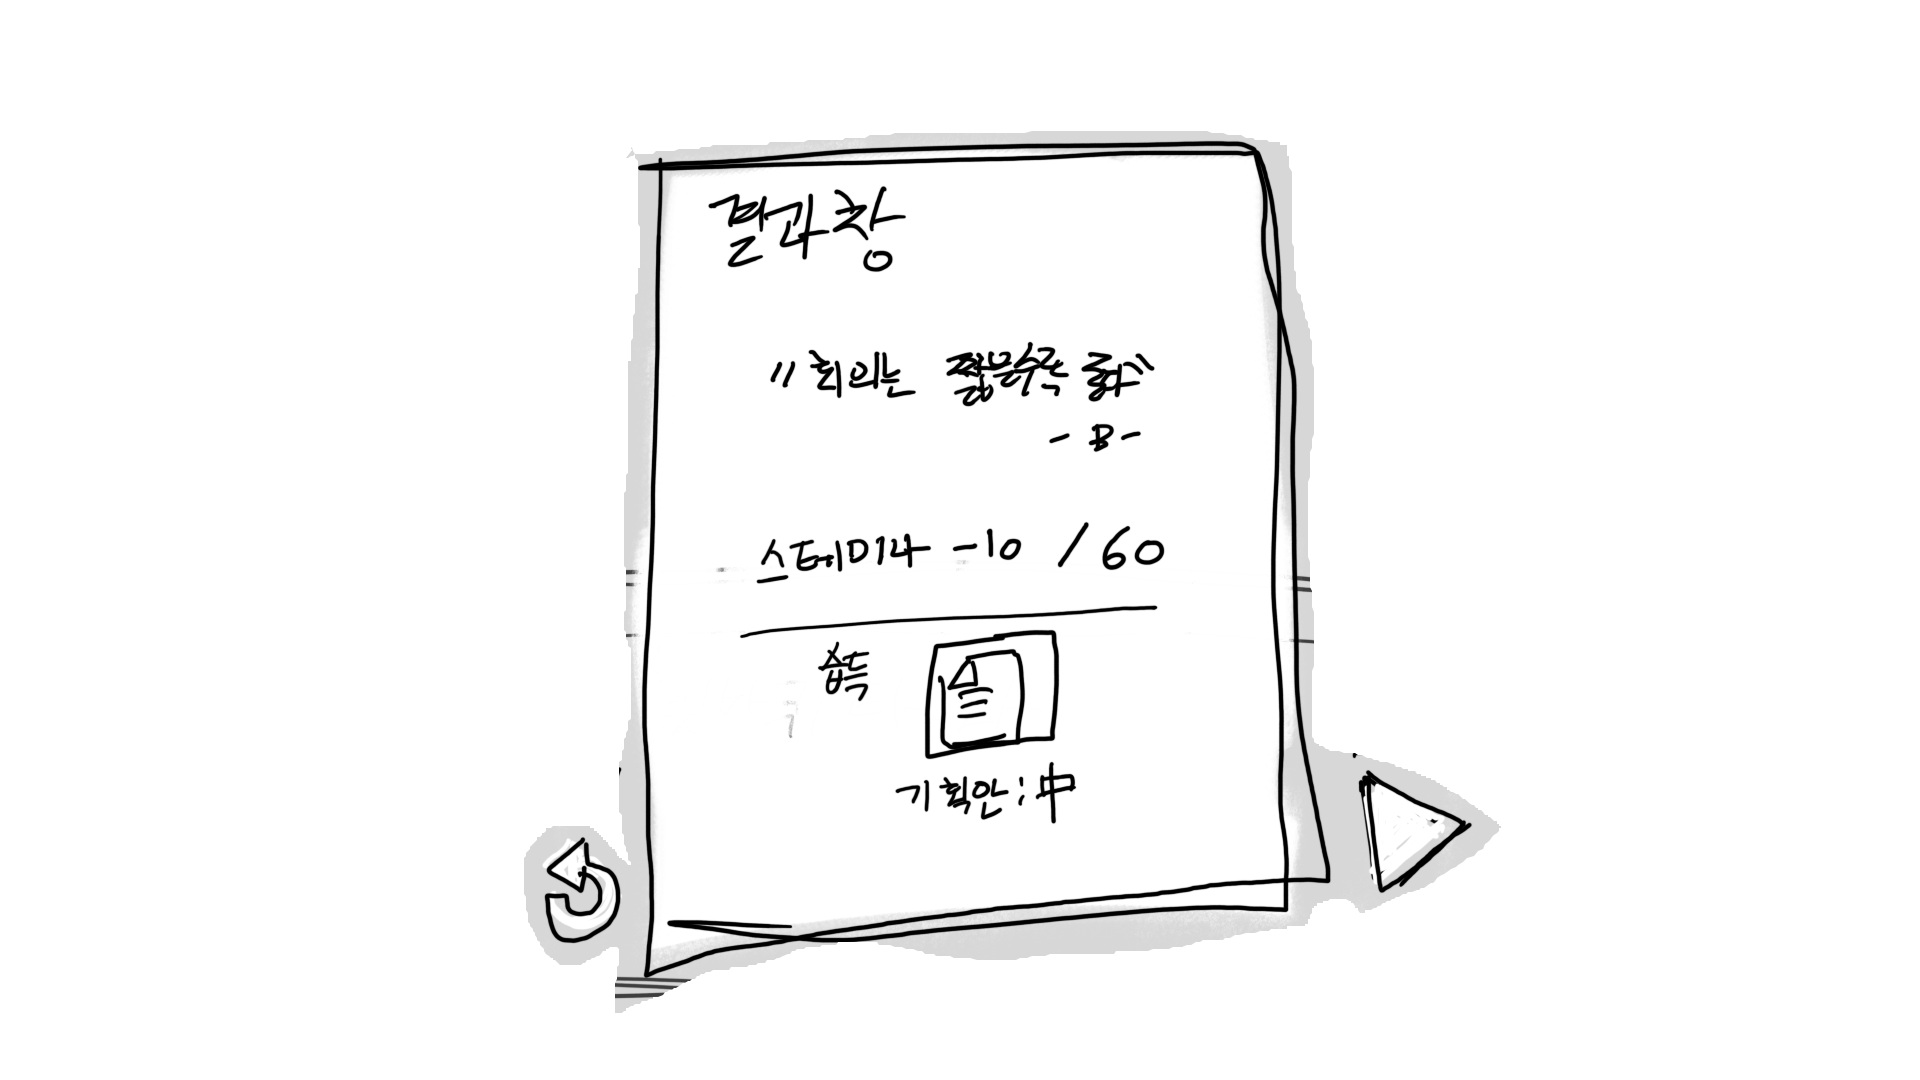 결과창
"회의는 짧을수록 좋다"
- B -
스테미나 -10 / 60
습득
기획안 : 中